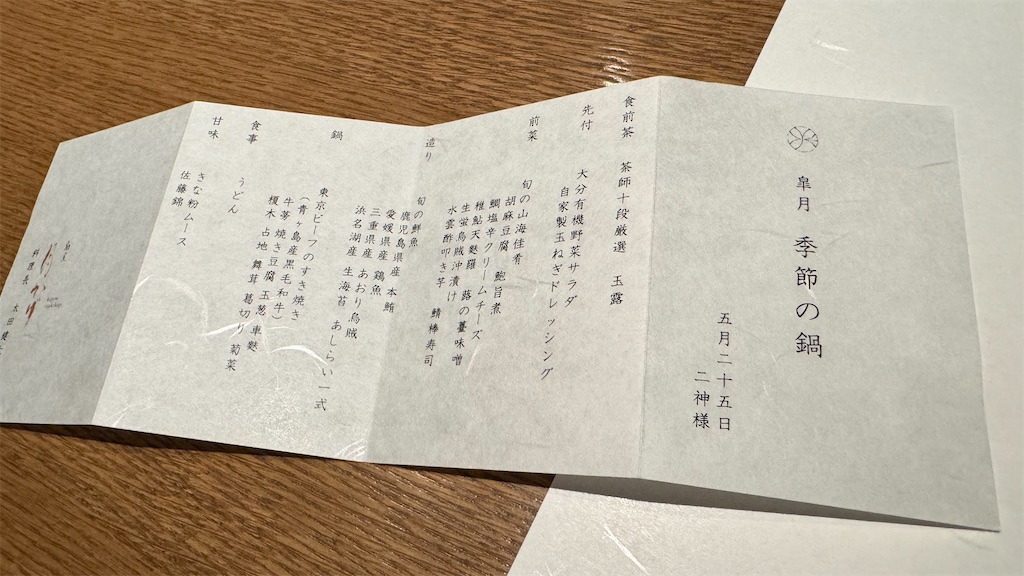 皐月 季節の鍋
五月二十五日
二神様
食前茶 茶師十段厳選 玉露
先付 大分有機野菜サラダ
自家製玉ねぎドレッシング
前菜 旬の山海佳肴
胡麻豆腐 鮑旨煮
鯛塩辛クリームチーズ
稚鮎天麩羅 蕗の薹味噌
生蛍烏賊沖漬け
水雲酢叩き芋 鯖棒寿司
造り 旬の鮮魚
鹿児島県産 本鮪
愛媛県産 鶏魚
三重県産 あおり烏賊
浜名湖産 生海苔 あしらい一式
鍋 東京ビーフのすき焼き
（青ヶ島産黒毛和牛）
牛蒡 焼き豆腐 玉葱 車麩
榎木 占地 舞茸 葛切り 菊菜
食事 うどん
甘味 きな粉ムース
佐藤錦
料理長 太田